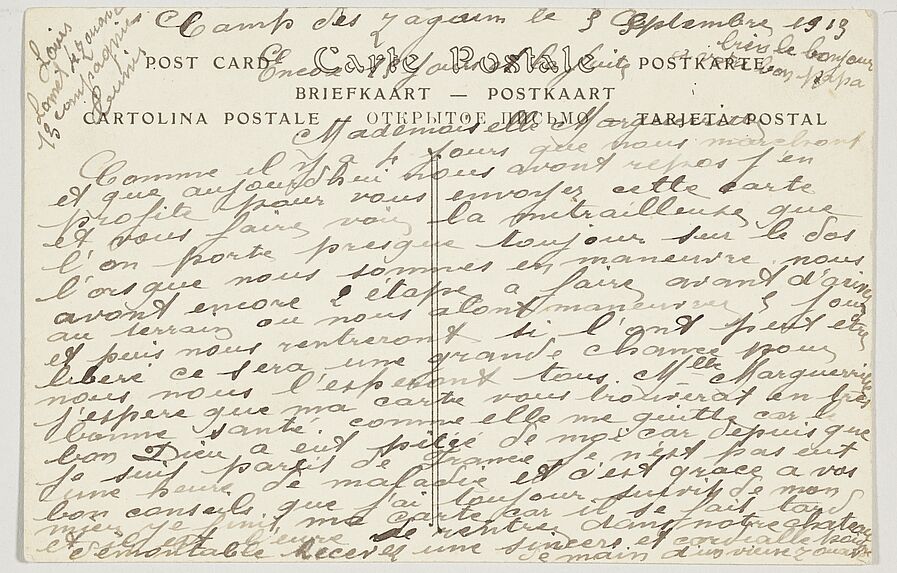 Camp des Zagouin le 3 Septembre 1913
Louis
4 Zouave
13 compagnie
Tunis
bien le bonjour
bon papa
POST CARD Carte Postale POSTKARTE
BRIEFKAART — POSTKAART
CARTOLINA POSTALE — ОТКРЫТОЕ ПИСЬМО — TARJETA POSTAL
Encore jours
Mademoiselle Marguerite
Comme il y a 4 jours que nous marchont
et que aujourd'hui nous avont repos j'en
profite pour vous envoyer cette carte
et vous faire voir la mitrailleuse que
l'on porte presque toujour sur le dos
l'orsque nous sommes en maneuvre nous
avont encore 2 étape a faire avant d'arive
au terrain ou nous alont maneuvrer 5 jour
et puis nous rentreront si l'ont peut être
liberé ce sera une grande chance pour
nous nous l'esperont tous Mlle Marguerite
j'espere que ma carte vous trouverat en tres
bonne santé comme elle me quitte car le
bon Dieu a eut pitiée de moi car depuis que
je suis partis de France je n'est pas eut
une heure de maladie et c'est grace a vos
bon conseils que j'ai toujour suivit de mon
mieux je finit ma carte car il se fait tard
et il est heure de rentrer dans notre chateau
démontable Recevez une sincere et cordialle poigne
de main d'un vieux zouave